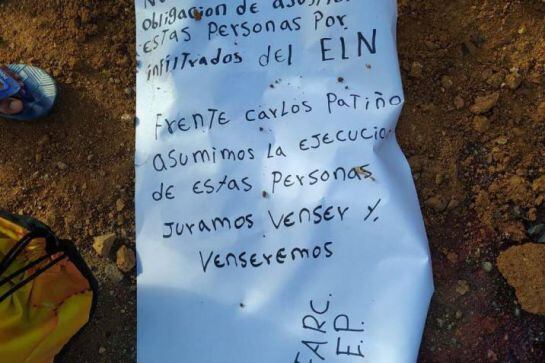 obligacion de
estas Personas Por
infiltrados del ELN
Frente Carlos Patiño
asumimos la ejecucio
de estas Personas
juramos venser y,
venseremos
FARC.
E.P.